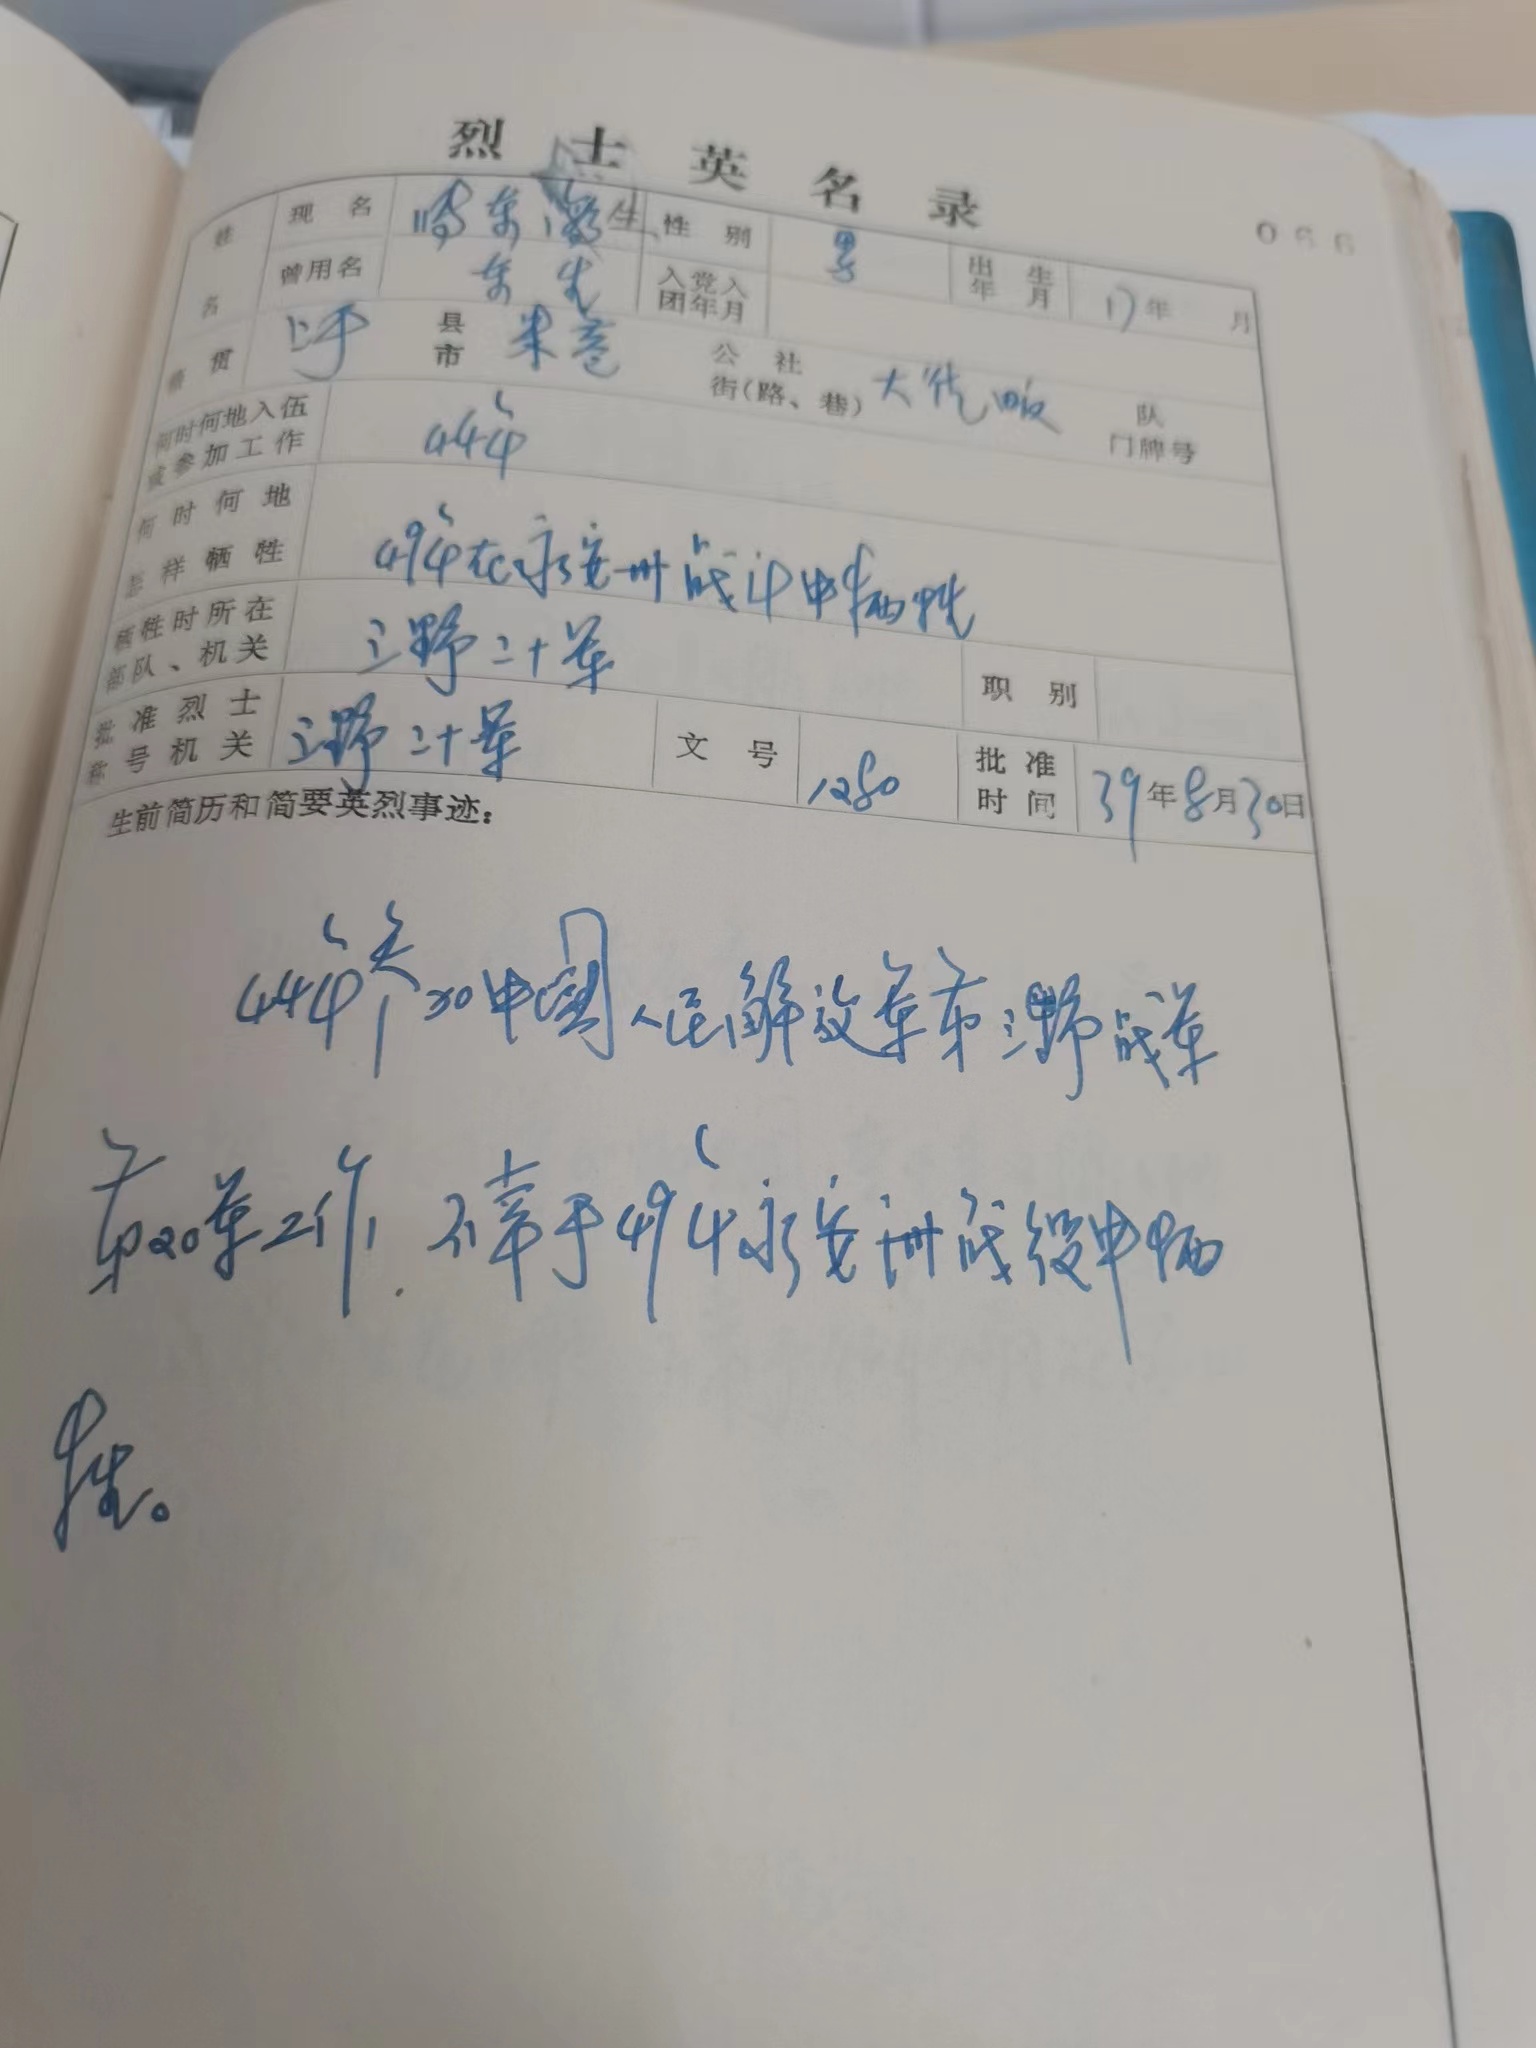 烈士英名录
066
姓名 现名 东 生 性别 男 出生年月 17年 月
曾用名 东生 入党入团年月
籍贯 上于 县市 朱巷 公社街(路、巷) 大 畈 队门牌号
何时何地入伍或参加工作 44年
何时何地怎样牺牲 49年在永安州战斗中牺牲
牺牲时所在部队、机关 三野二十军 职别
批准烈士称号机关 三野二十军 文号 1280 批准时间 39年8月30日
生前简历和简要英烈事迹：
44年参加中国人民解放军第三野战军
第20军工作.不幸于49年永安州战役中牺
牲。